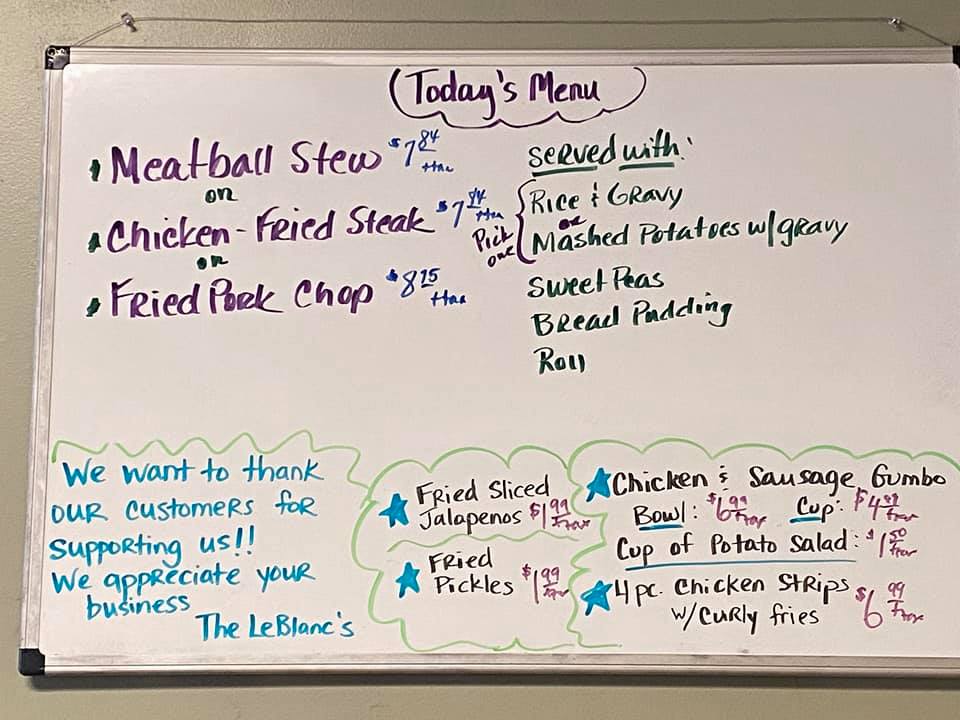 Today's Menu
Meatball Stew $7 84 +tax
or
Chicken-Fried Steak $7 84 +tax
or
Fried Pork Chop $8 15 +tax
Served with:
Pick one
Rice & Gravy
or
Mashed Potatoes w/gravy
Sweet Peas
Bread Pudding
Roll
We want to thank
our customers for
supporting us!!
We appreciate your
business
The LeBlanc's
Fried Sliced
Jalapenos $1 99 +tax
Fried
Pickles $1 99 +tax
Chicken & Sausage Gumbo
Bowl: $6 99 +tax Cup: $4 +tax
Cup of Potato Salad: $1 50 +tax
4pc. Chicken Strips
w/curly fries $6 99 +tax